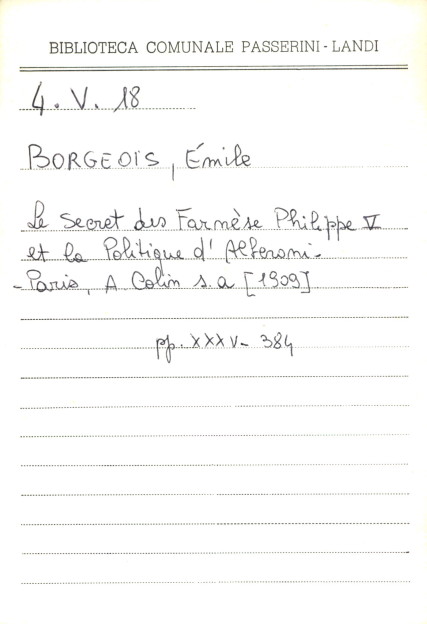 BIBLIOTECA COMUNALE PASSERINI - LANDI
4. V. 18
BORGEOIS, Émile
Le Secret des Farnèse Philippe V
et la Politique d'Alberoni -
- Paris, A Colin s.a [1909]
pp. XXXV - 384